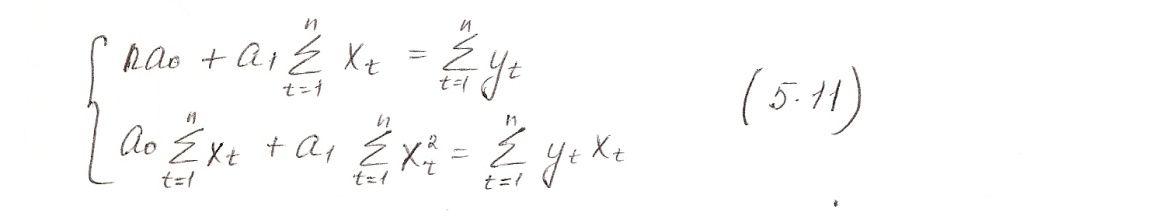 { na₀ + a₁ ∑ₜ₌₁ⁿ xₜ = ∑ₜ₌₁ⁿ yₜ (5.11)
a₀ ∑ₜ₌₁ⁿ xₜ + a₁ ∑ₜ₌₁ⁿ xₜ² = ∑ₜ₌₁ⁿ yₜ xₜ